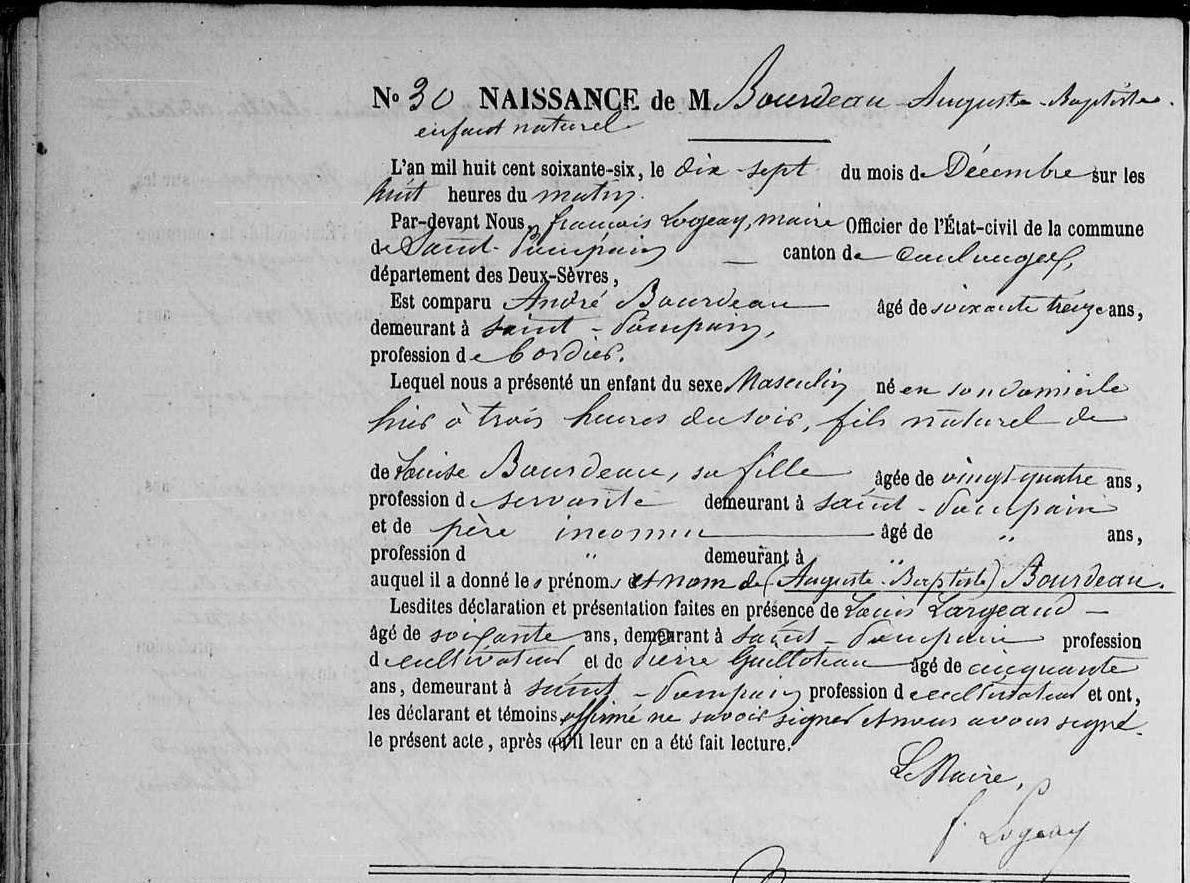 Nº 30 NAISSANCE de M Bourdeau Auguste-Baptiste.
enfant naturel
L'an mil huit cent soixante-six, le dix-sept du mois de Décembre sur les
huit heures du matin.
Par-devant Nous, françois Logeay, maire Officier de l'État-civil de la commune
de Saint-Pompain canton de Coulonges,
département des Deux-Sèvres,
Est comparu André Bourdeau âgé de soixante treize ans,
demeurant à saint-Pompain,
profession de Cordier.
Lequel nous a présenté un enfant du sexe Masculin né en son domicile
hier à trois heures du soir, fils naturel de
de Louise Bourdeau, sa fille âgée de vingt-quatre ans,
profession de servante demeurant à saint-Pompain
et de père inconnu âgé de " ans,
profession d " demeurant à "
auquel il a donné les prénoms et nom de (Auguste-Baptiste) Bourdeau.
Lesdites déclaration et présentation faites en présence de Louis Largeaud
âgé de soixante ans, demeurant à saint-Pompain profession
de cultivateur et de Pierre Guilloteau âgé de cinquante
ans, demeurant à saint-Pompain profession de cultivateur et ont,
les déclarant et témoins affirmé ne savoir signer et nous avons signé
le présent acte, après qu'il leur en a été fait lecture.
Le Maire,
f. Logeay